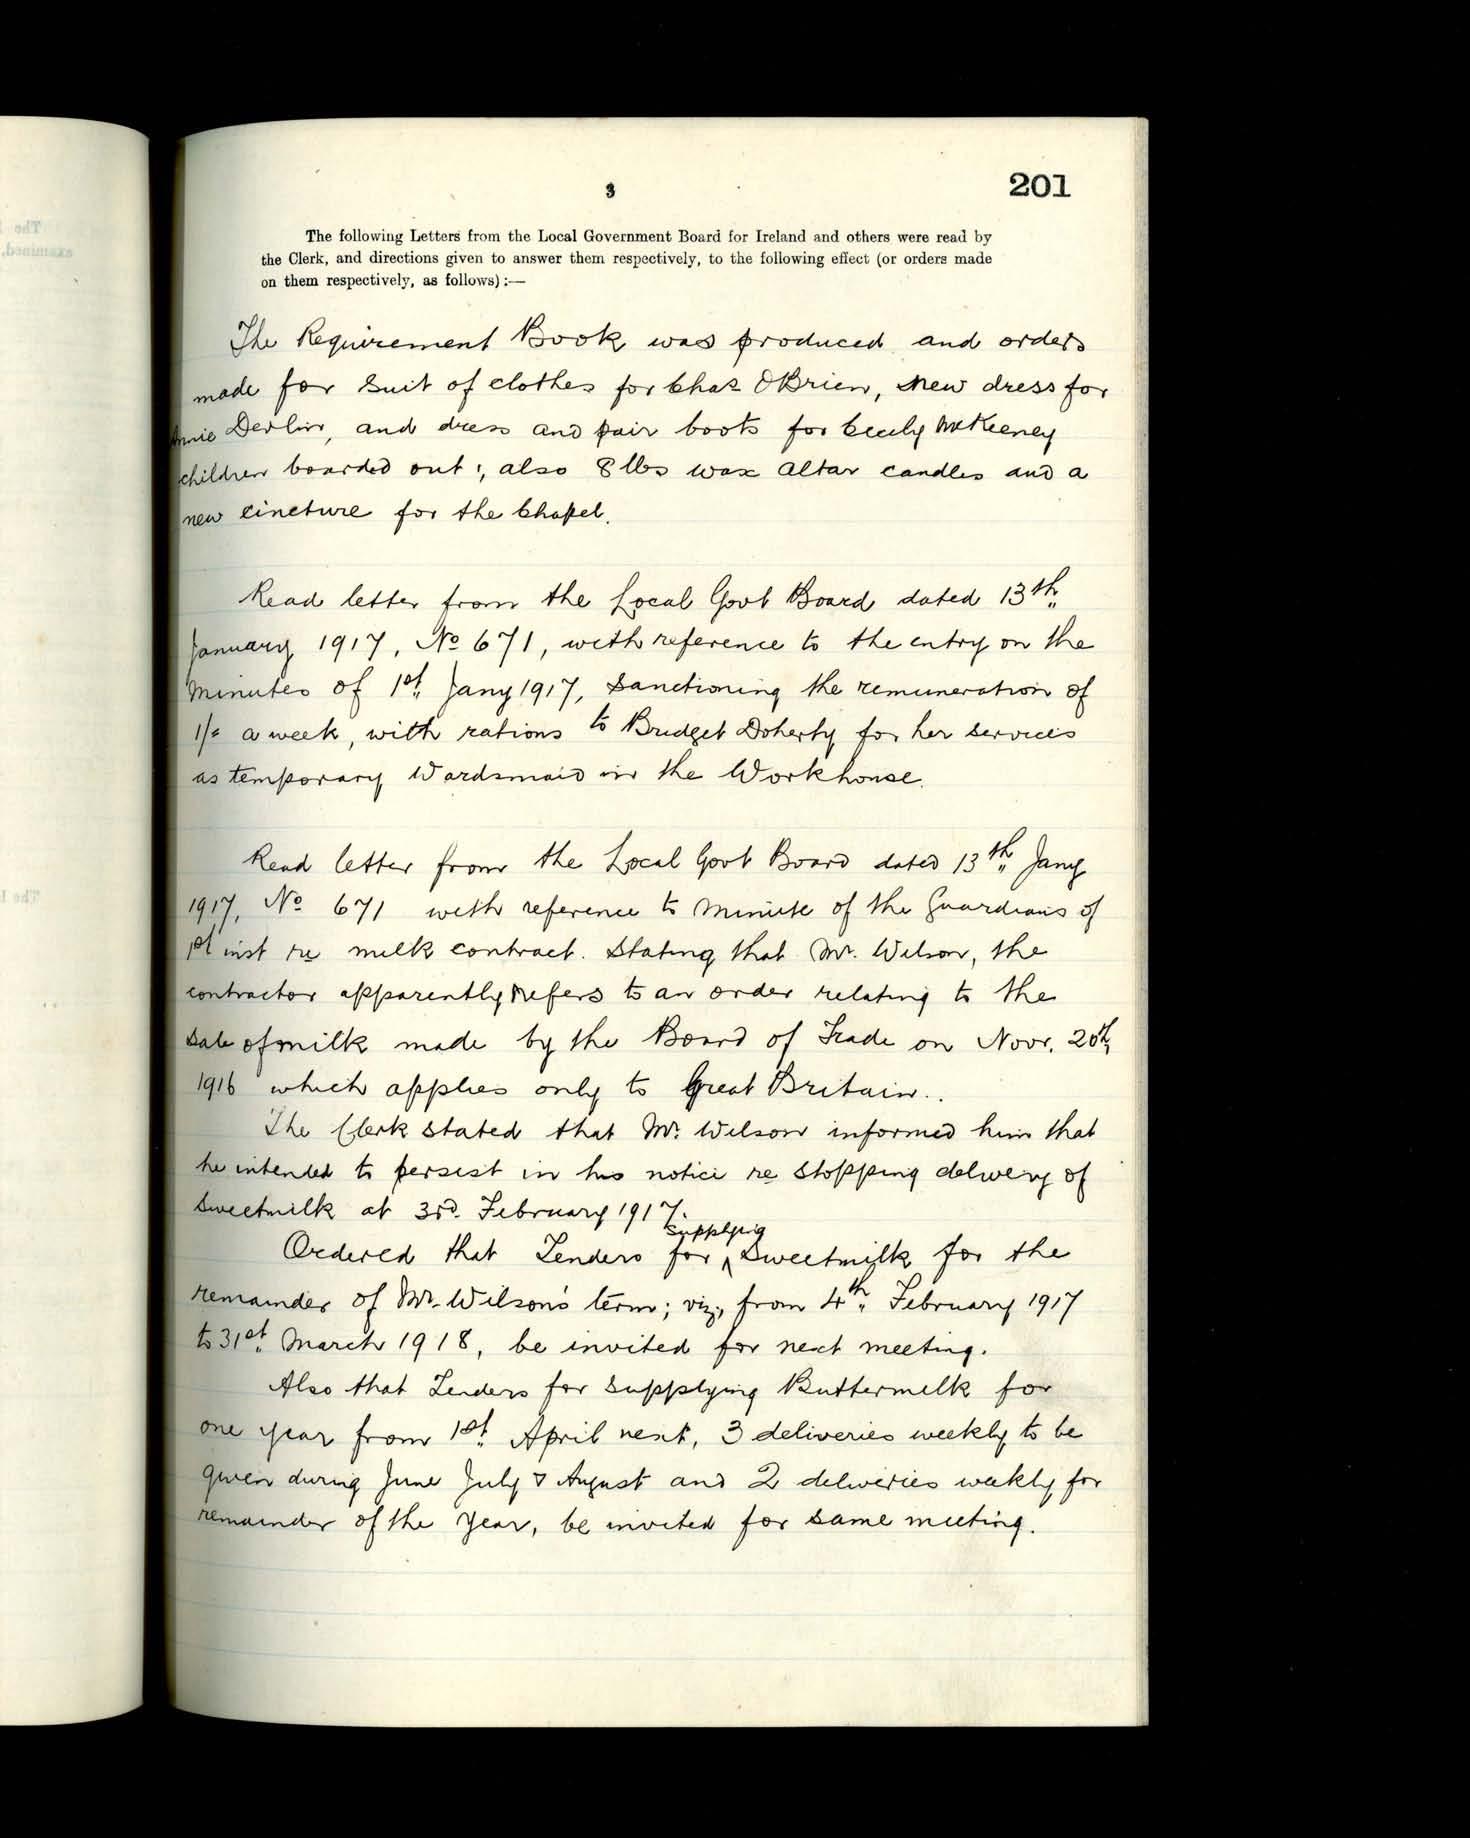 3
201
The following Letters from the Local Government Board for Ireland and others were read by
the Clerk, and directions given to answer them respectively, to the following effect (or orders made
on them respectively, as follows):—
The Requirement Book was produced and orders
made for Suit of clothes for Chas O'Brien, new dress for
Annie Devlin, and dress and pair boots for Cecily McKeeney
children boarded out; also 8 lbs wax Altar candles and a
new cincture for the Chapel.
Read letter from the Local Govt Board dated 13th
January 1917, No 671, with reference to the entry on the
Minutes of 1st Jany 1917, Sanctioning the remuneration of
1/= a week, with rations to Bridget Doherty for her services
as temporary Wardsmaid in the Workhouse.
Read letter from the Local Govt Board dated 13th Jany
1917, No 671 with reference to Minute of the Guardians of
1st inst re milk contract. Stating that Mr. Wilson, the
contractor apparently refers to an order relating to the
Sale of milk made by the Board of Trade on Novr. 20th,
1916 which applies only to Great Britain..
The Clerk stated that Mr. Wilson informed him that
he intended to persist in his notice re stopping delivery of
Sweetmilk at 3rd. February 1917.
supplying
Ordered that Tenders for ^ Sweetmilk for the
remainder of Mr. Wilson's term; viz, from 4th February 1917
to 31st March 1918, be invited for next meeting.
Also that Tenders for Supplying Buttermilk for
one year from 1st April next, 3 deliveries weekly to be
given during June July & August and 2 deliveries weekly for
remainder of the Year, be invited for same meeting.
The
examined,
The